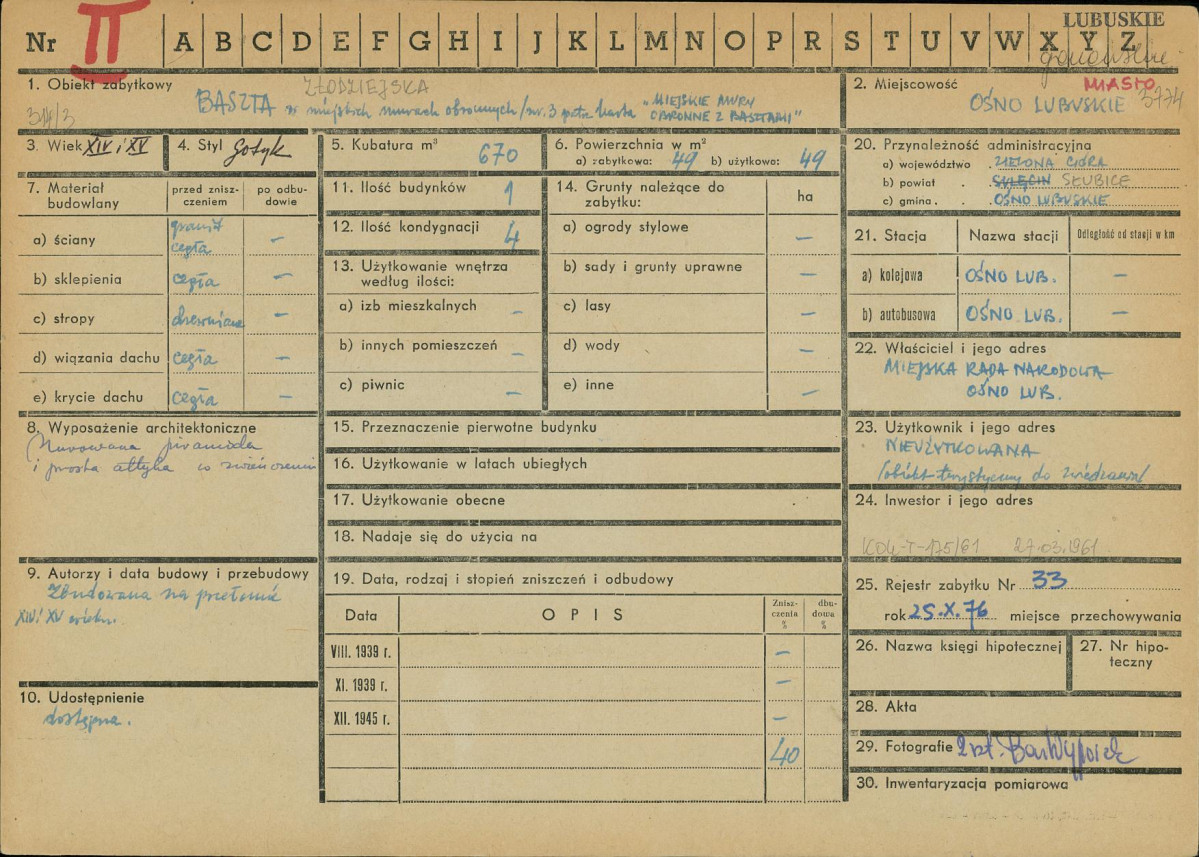 LUBUSKIE
Nr II A B C D E F G H I J K L M N O P R S T U V W X Y Z
1. Obiekt zabytkowy ZŁODZIEJSKA
BASZTA w miejskich murach obronnych /nr. 3 patrz karta "MIEJSKIE MURY
OBRONNE Z BASZTAMI"
2. Miejscowość MIASTO
OŚNO LUBUSKIE
3. Wiek XIV i XV
4. Styl Gotyk
5. Kubatura m³ 670
6. Powierzchnia w m²
a) zabytkowa: 49 b) użytkowa: 49
7. Materiał budowlany
przed zniszczeniem
po odbudowie
a) ściany granit cegła –
b) sklepienia cegła –
c) stropy drewniane –
d) wiązania dachu cegła –
e) krycie dachu cegła –
8. Wyposażenie architektoniczne
Murowana piramida
i prosta attyka w zwieńczeniu
9. Autorzy i data budowy i przebudowy
Zbudowana na przełomie
XIV i XV wieku.
10. Udostępnienie
dostępna.
11. Ilość budynków 1
12. Ilość kondygnacji 4
13. Użytkowanie wnętrza
według ilości:
a) izb mieszkalnych –
b) innych pomieszczeń –
c) piwnic –
14. Grunty należące do
zabytku: ha
a) ogrody stylowe –
b) sady i grunty uprawne –
c) lasy –
d) wody –
e) inne –
15. Przeznaczenie pierwotne budynku
16. Użytkowanie w latach ubiegłych
17. Użytkowanie obecne
18. Nadaje się do użycia na
19. Data, rodzaj i stopień zniszczeń i odbudowy
Data OPIS Zniszczenia % dbudowa %
VIII. 1939 r. –
XI. 1939 r. –
XII. 1945 r. –
40
20. Przynależność administracyjna
a) województwo . ZIELONA GÓRA
b) powiat . SULĘCIN SŁUBICE
c) gmina . OŚNO LUBUSKIE
21. Stacja Nazwa stacji Odległość od stacji w km
a) kolejowa OŚNO LUB. –
b) autobusowa OŚNO LUB. –
22. Właściciel i jego adres
MIEJSKA RADA NARODOWA
OŚNO LUB.
23. Użytkownik i jego adres
NIEUŻYTKOWANA
/obiekt turystyczny do zwiedzania/
24. Inwestor i jego adres
KOK-T-175/61 27.03.1961
25. Rejestr zabytku Nr 33
rok 25.X.76 miejsce przechowywania
26. Nazwa księgi hipotecznej
27. Nr hipoteczny
28. Akta
29. Fotografie 2 szt.
30. Inwentaryzacja pomiarowa